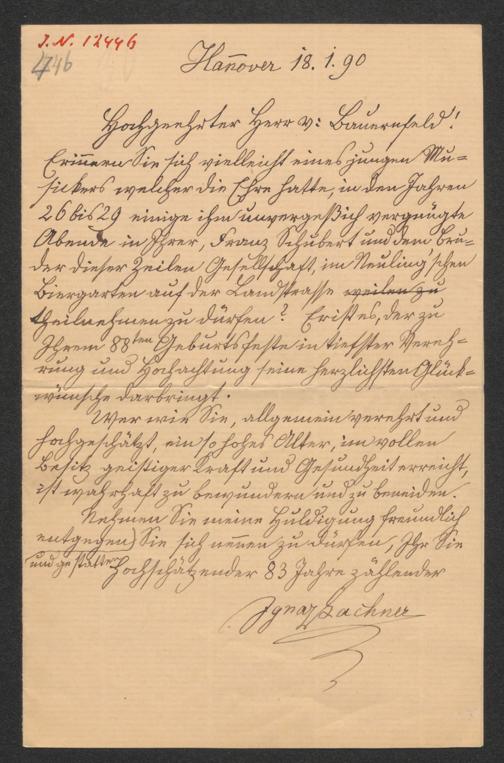 I. N. 12446
446
Hannover 18. 1. 90
Hochgeehrter Herr v: Bauernfeld!
Erinnern Sie sich vielleicht eines jungen Mu-
sickers welcher die Ehre hatte, in den Jahren
26 bis 29 einige ihm unvergeßlich vergnügte
Abende in Ihrer, Franz Schubert und dem Bru-
der dieser Zeilen Gesellschaft, im Neuling'schen
Biergarten auf der Landstrasse weilen zu
theilnehmen zu dürfen? Er ist es, der zu
Ihrem 88ten Geburtsfeste in tiefster Vereh-
rung und Hochachtung seine herzlichsten Glück-
wünsche darbringt.
Wer wie Sie, allgemein verehrt und
hochgeschätzt, ein so hohes Alter, im vollen
Besitz geistiger Kraft und Gesundheit erreicht,
ist wahrhaft zu bewundern und zu beneiden.
Nehmen Sie meine Huldigung freundlich
entgegen) Sie sich nennen zu dürfen, Ihr Sie
und gestatten Hochschätzender 83 Jahre zählender
Ignaz Lachner